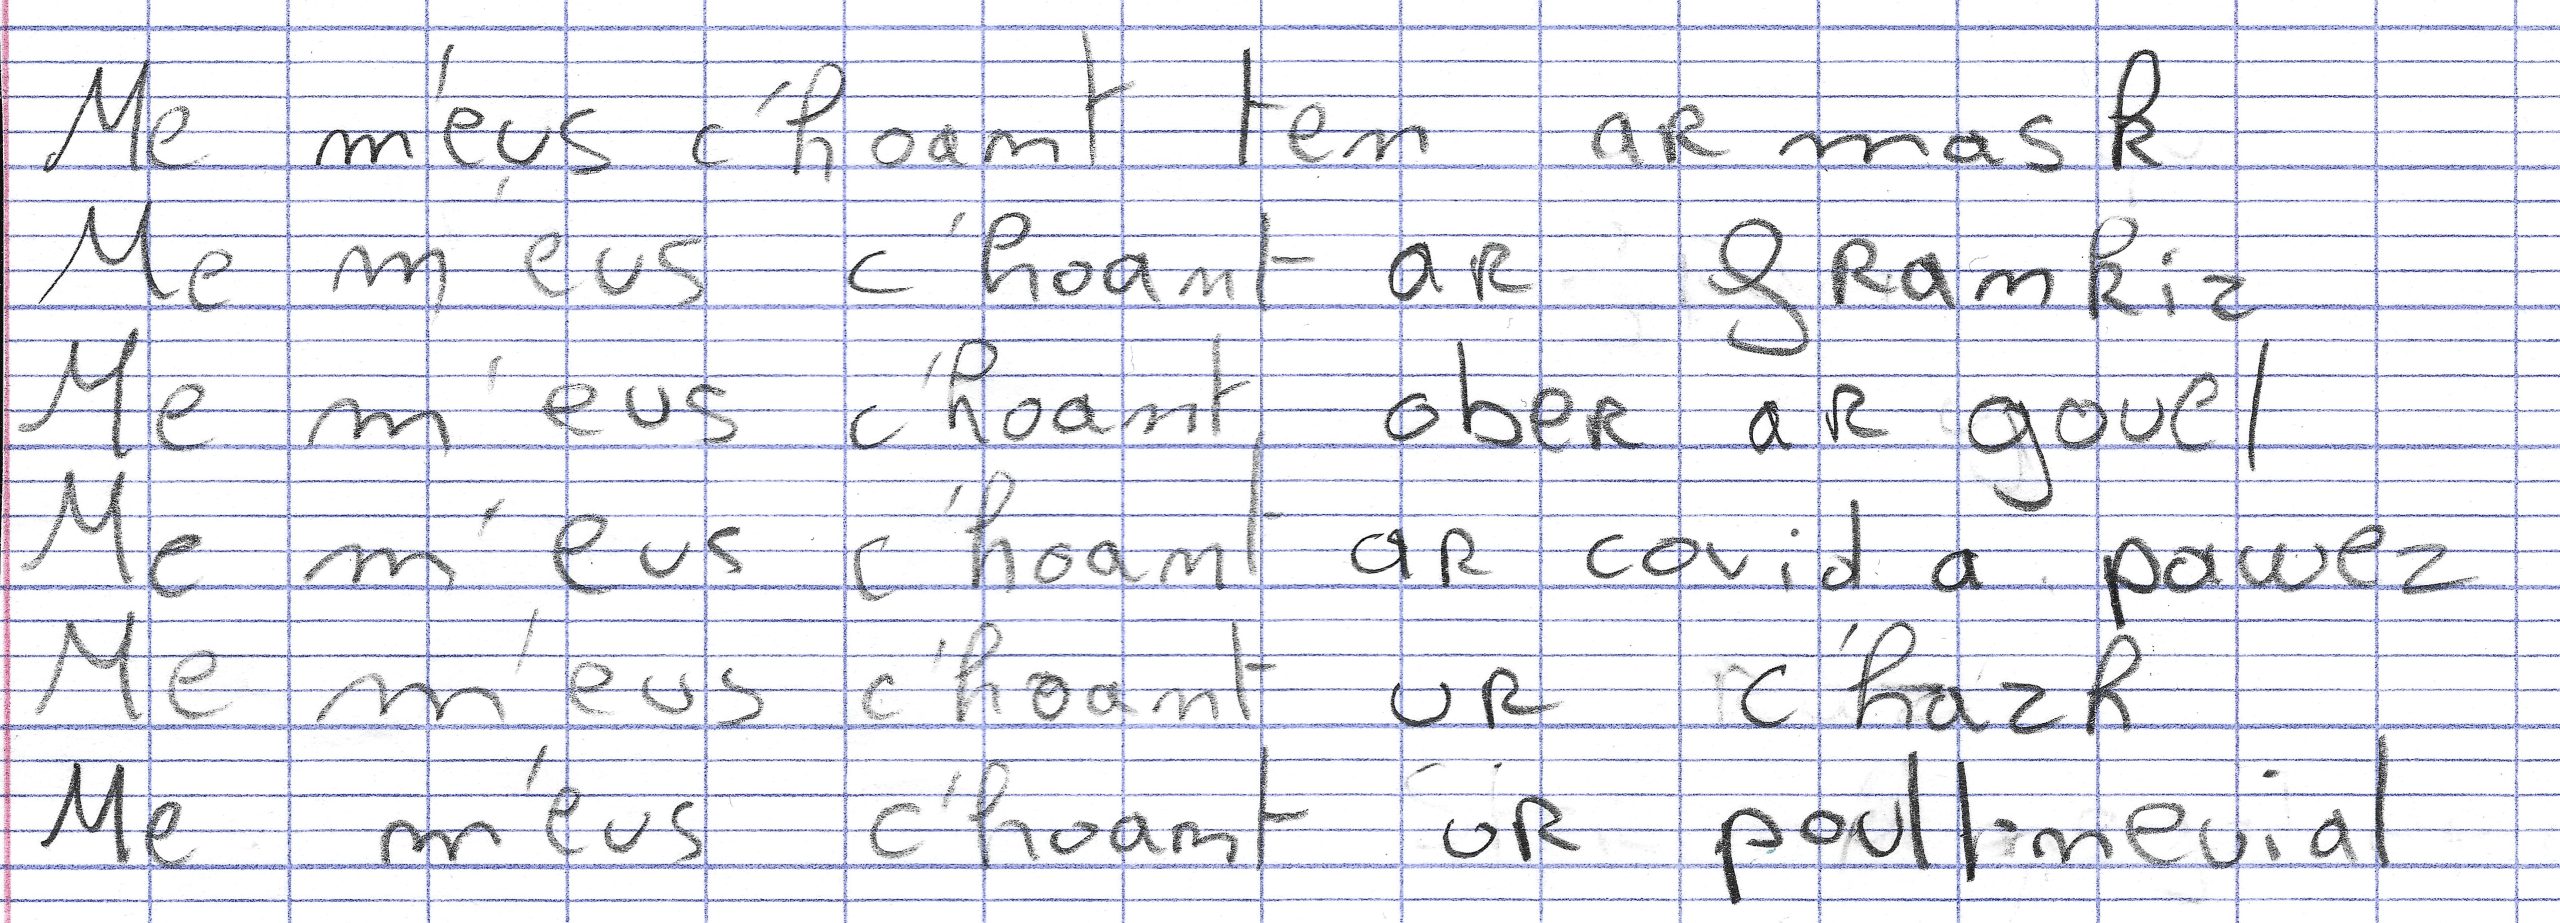 Me m'eus c'hoant ten ar mask
Me m'eus c'hoant ar grankiz
Me m'eus c'hoant ober ar gouel
Me m'eus c'hoant ar covid a pawez
Me m'eus c'hoant ur c'hazh
Me m'eus c'hoant ur poullinevial